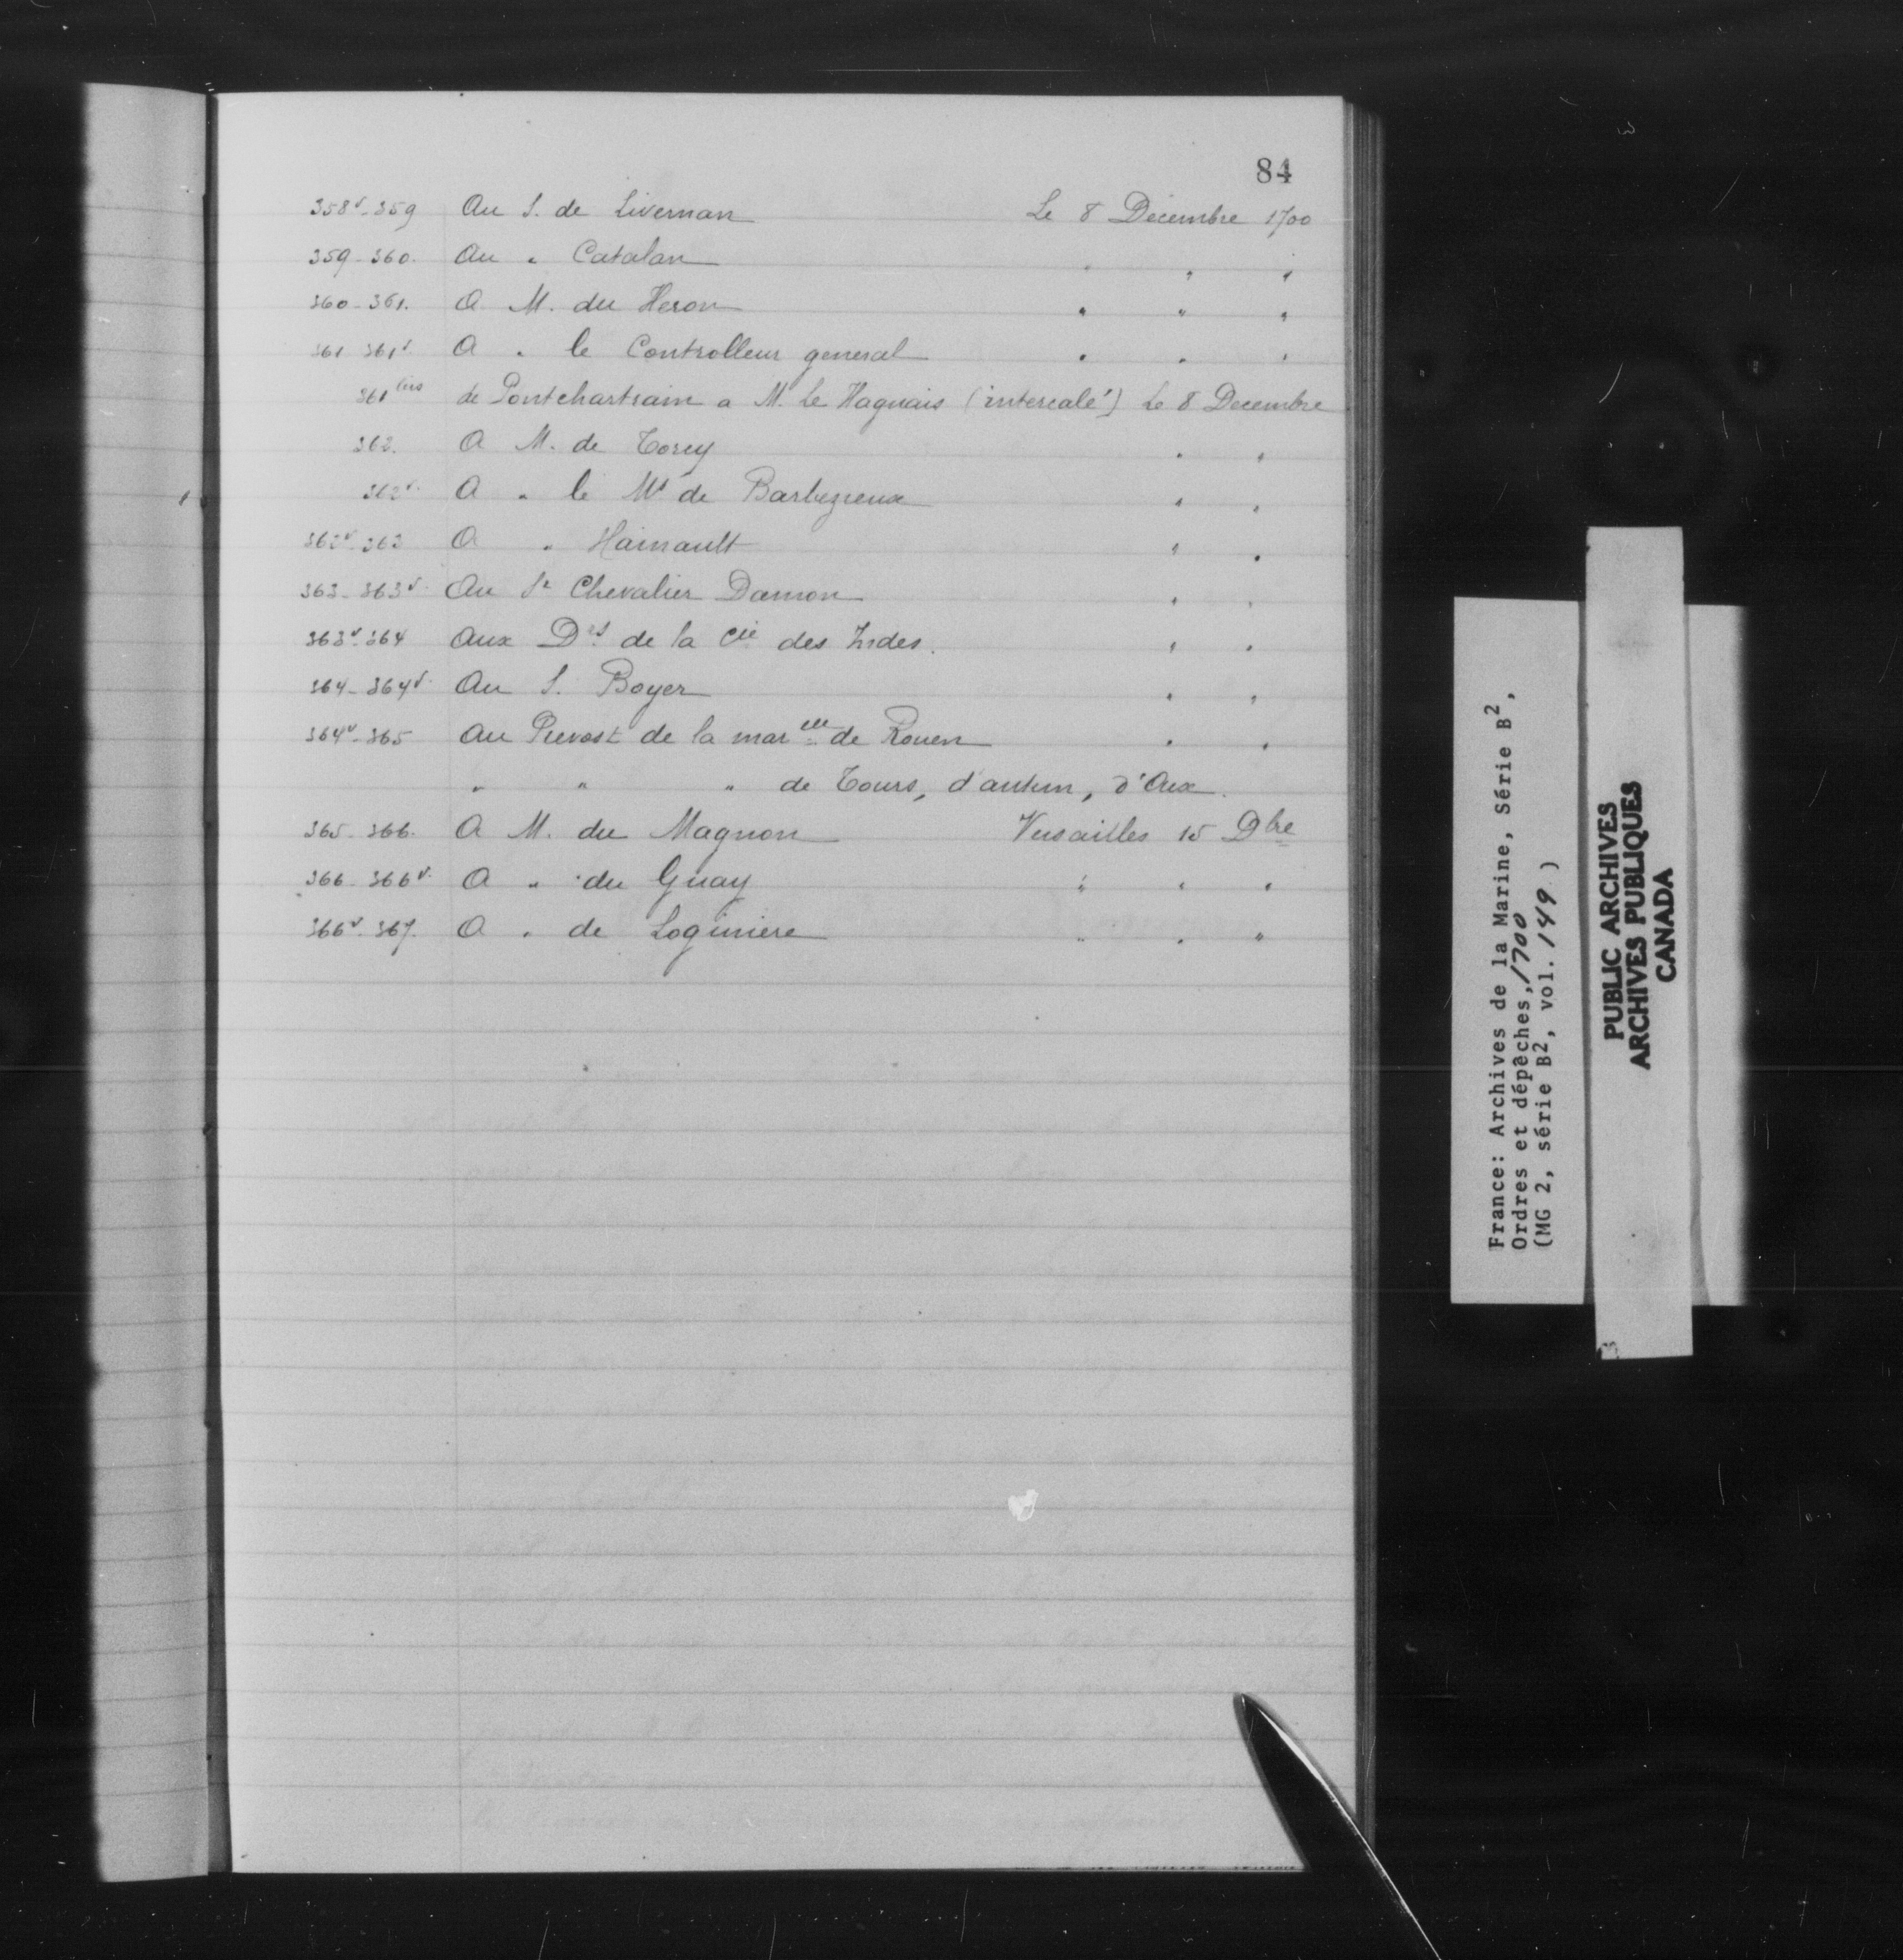 84
358v-359 Au S. de Livernan Le 8 Décembre 1700
359-360. Au " Catalan " " "
360-361. A M. du Heron " " "
361 361v. A " le Controlleur general " " "
361 bis de Pontchartrain a M. Le Haguais (intercalé) Le 8 Decembre
362. A M. de Torcy " "
362v. A " le Mis de Barbezieux " "
362v-363 A " Hainault " "
363-363v. Au Sr Chevalier Damon " "
363v-364 Aux Drs de la Cie des Indes. " "
364-364v. Au S. Boyer " "
364v-365 Au Prevost de la marelle de Rouen " "
" " " de Tours, d'autun, d'Aix.
365-366. A M. du Magnon Versailles 15 Dbre
366-366v. A " du Guay " " "
366v-367. A " de Loginiere " " "
France: Archives de la Marine, Série B2,
Ordres et dépêches, 1700
(MG 2, série B2, vol. 149)
PUBLIC ARCHIVES
ARCHIVES PUBLIQUES
CANADA